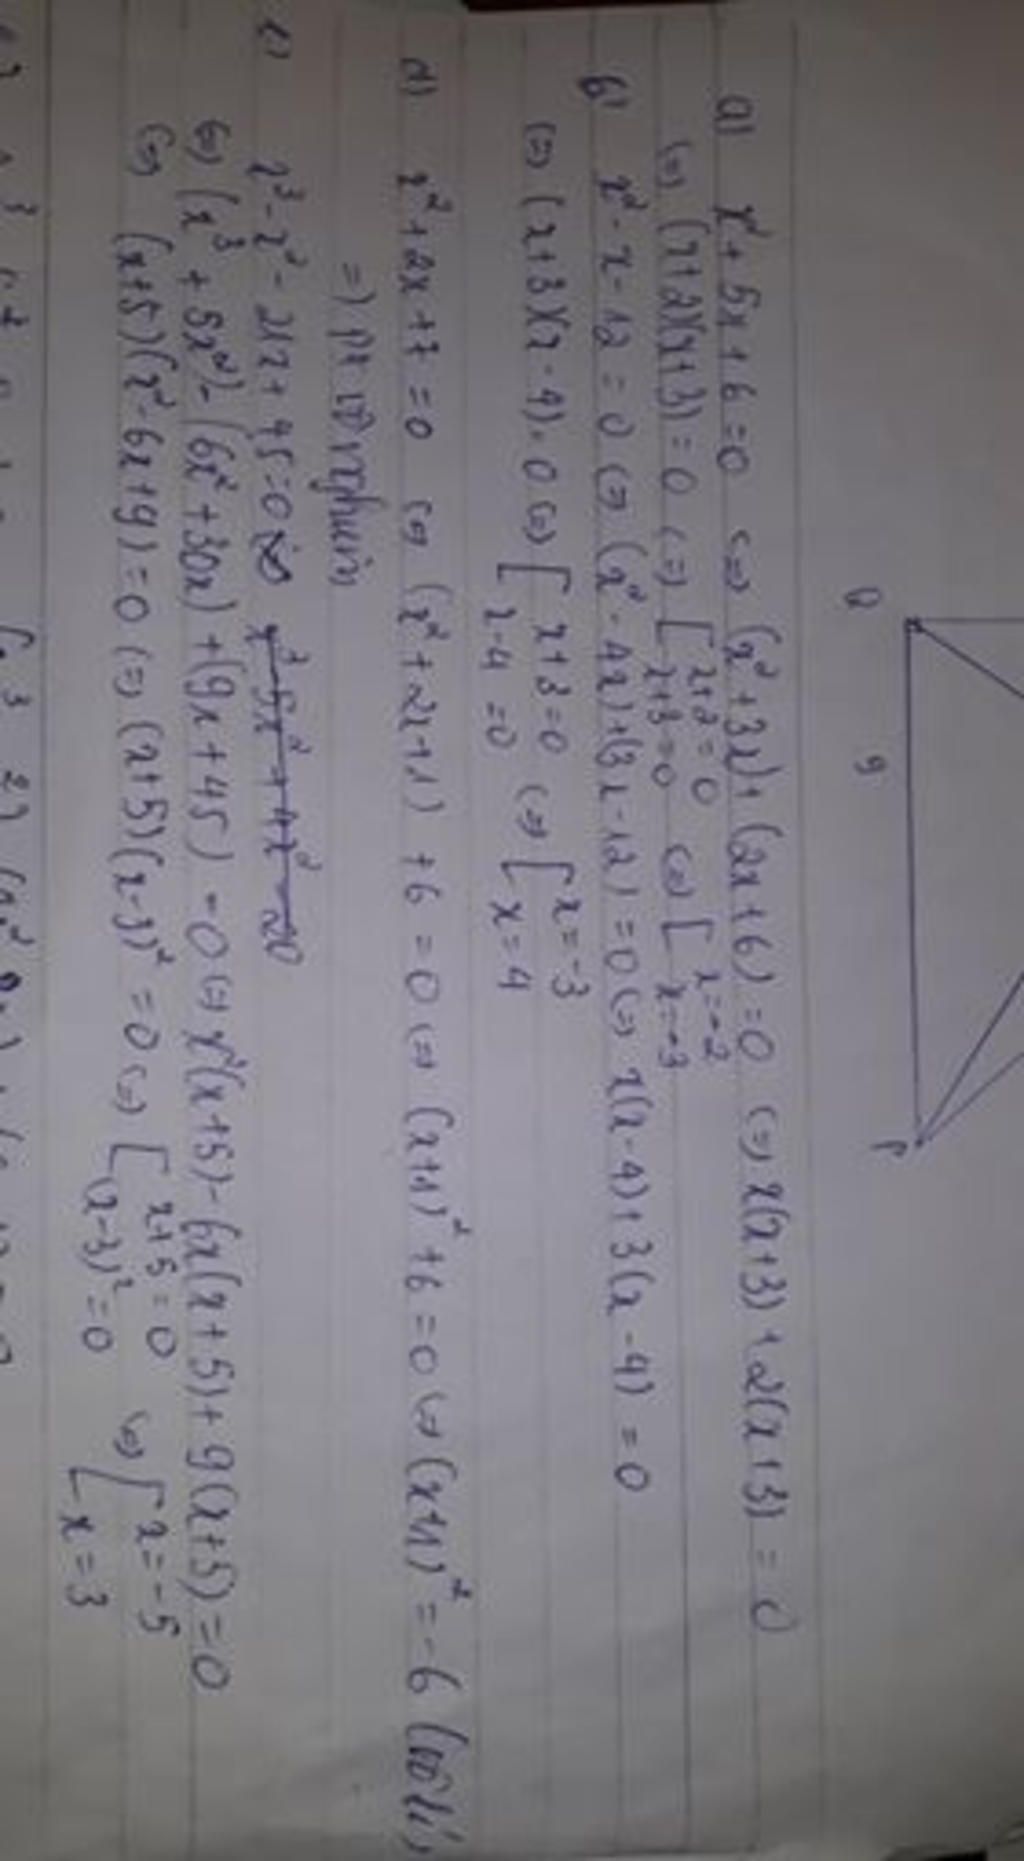 Q 9 P
a) x² + 5x + 6 = 0 (=) (x² + 3x) + (2x + 6) = 0 (=) x(x+3) + 2(x+3) = 0
(=) (x+2)(x+3) = 0 (=) [ x+2 = 0 x+3 = 0 (=) [ x = -2 x = -3
b) x² - x - 12 = 0 (=) (x² - 4x) + (3x - 12) = 0 (=) x(x-4) + 3(x-4) = 0
(=) (x+3)(x-4) = 0 (=) [ x+3 = 0 x-4 = 0 (=) [ x = -3 x = 4
d) x² + 2x + 7 = 0 (=) (x² + 2x + 1) + 6 = 0 (=) (x+1)² + 6 = 0 (=) (x+1)² = -6 (vô lí)
=) pt vô nghiệm
c) x³ - x² - 21x + 45 = 0
(=) (x³ + 5x²) - (6x² + 30x) + (9x + 45) = 0 (=) x²(x+5) - 6x(x+5) + 9(x+5) = 0
(=) (x+5)(x² - 6x + 9) = 0 (=) (x+5)(x-3)² = 0 (=) [ x+5 = 0 (x-3)² = 0 (=) [ x = -5 x = 3